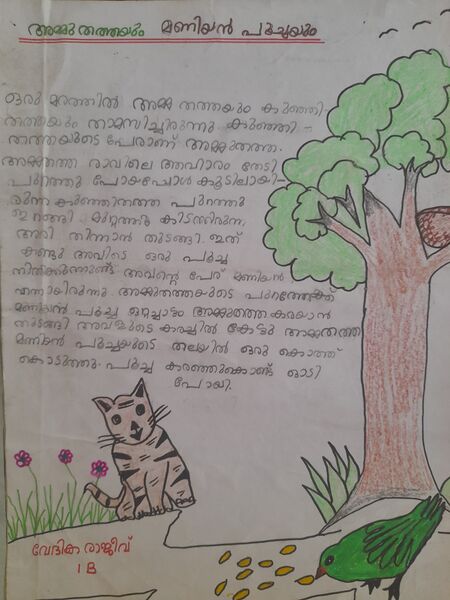 അമ്മു തത്തയും മണിയൻ പൂച്ചയും
ഒരു മരത്തിൽ അമ്മ തത്തയും കുഞ്ഞി-
തത്തയും താമസിച്ചിരുന്നു കുഞ്ഞി -
തത്തയുടെ പേരാണ് അമ്മുതത്ത.
അമ്മതത്ത രാവിലെ ആഹാരം തേടി
പുറത്തു പോയപ്പോൾ കൂട്ടിലായി-
രുന്ന കുഞ്ഞിതത്ത പുറത്തു
ഇറങ്ങി. മുറ്റത്തു കിടന്നിരുന്ന,
അരി തിന്നാൻ തുടങ്ങി. ഇത്
കണ്ടു അവിടെ ഒരു പൂച്ച
നിൽക്കുന്നുണ്ട് അവൻ്റെ പേര് മണിയൻ
എന്നായിരുന്നു. അമ്മുതത്തയുടെ പുറത്തേക്ക്
മണിയൻ പൂച്ച ഒറ്റച്ചാട്ടം അമ്മുതത്ത കരയാൻ
തുടങ്ങി അവളുടെ കരച്ചിൽ കേട്ടു അമ്മതത്ത
മണിയൻ പൂച്ചയുടെ തലയിൽ ഒരു കൊത്ത്
കൊടുത്തു. പൂച്ച കരഞ്ഞുകൊണ്ട് ഓടി
പോയി.
വേദിക രാജീവ്
1 B